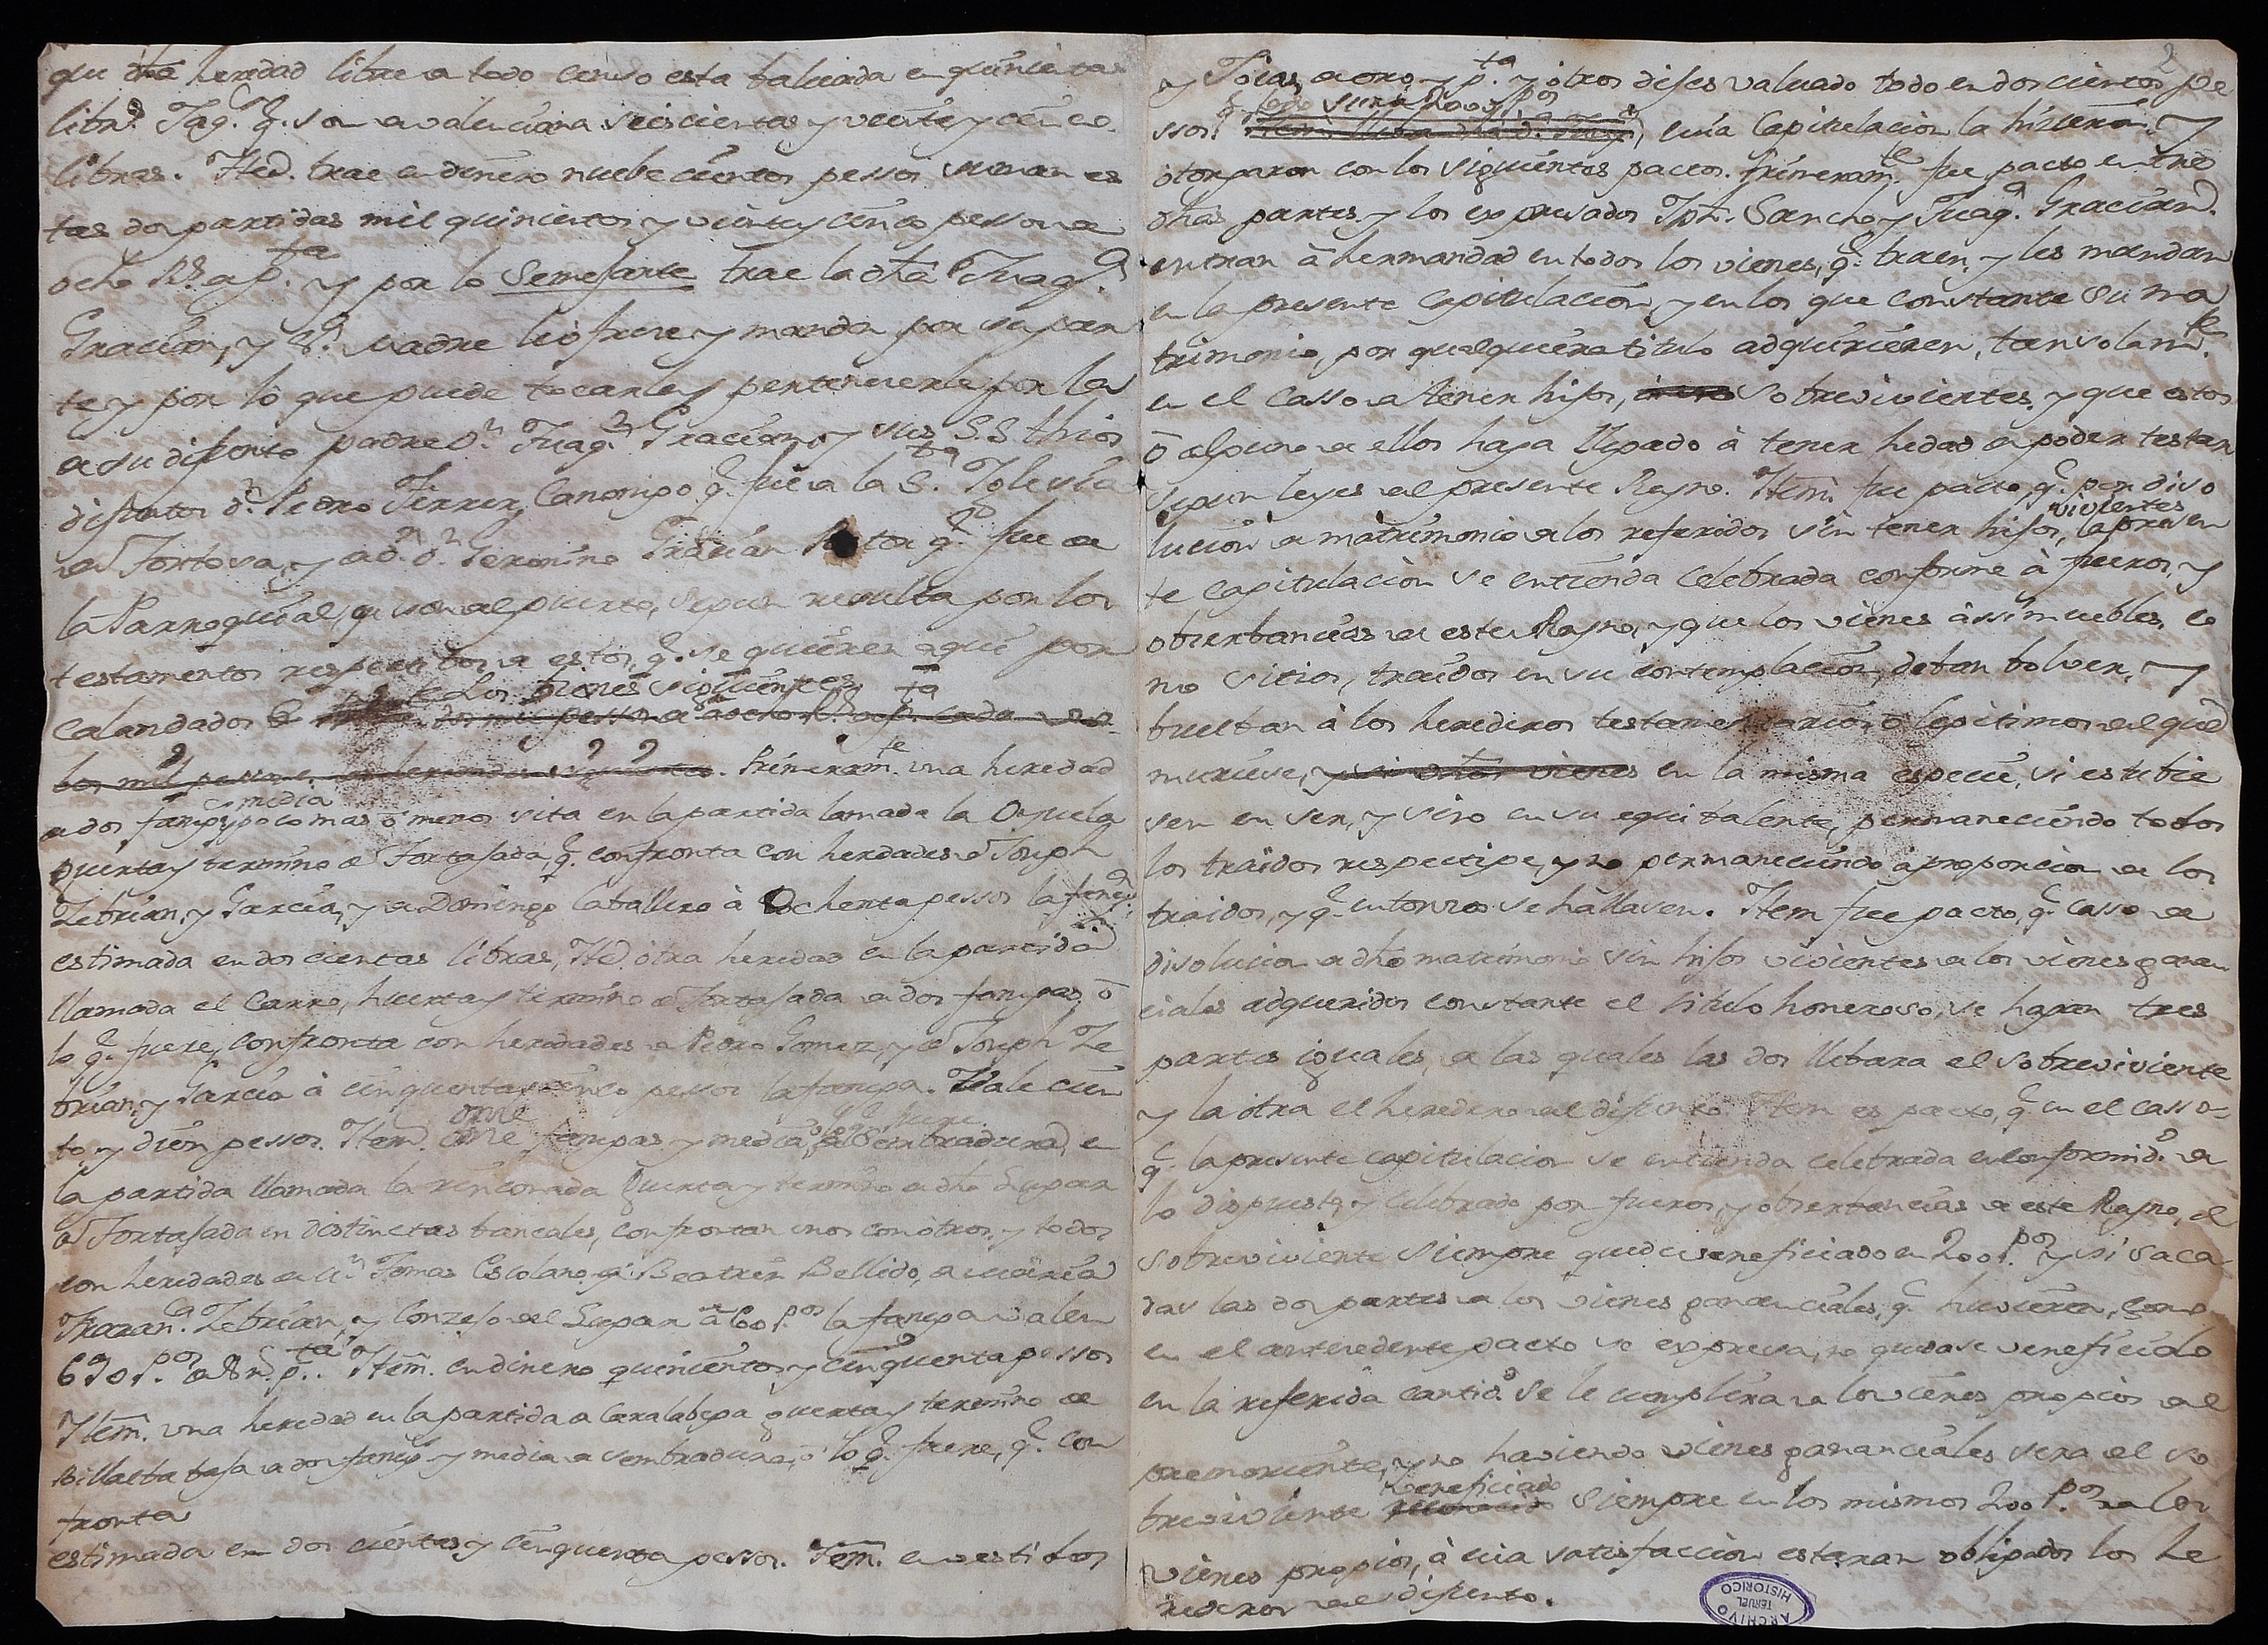 que dha heredad libre de todo censo esta baluada en quinientas
librs. Jaqs. q. son de valenciana seiscientas y veinte y cinco
libras. Ittd. trae en dinero nuebe cientos pessos suman es
tas dos partidas mil quinientos y veinte y cinco pessos de
ocho Rs. de pta. y por lo semejante trae la dha Juaqa.
Gracian, y sa. madre le ofreze y manda por su par
te y por lo que puede tocarle y pertenecerle por la
de su difunto padre Dn. Juaqn. Gracian, y sus S.S thios
difuntos dn. Pedro Ferrer, Canonigo q. fue de la Sta. Iglesia
de Tortosa, y de dn. Geronimo Gracian Retor q. fue de
la Parroquial, de del puerto, segun resulta por los
testamentos respectibos de estos, q. se quieren aqui por
Calandados los bienes siguientes
dos mil pessos de a ocho Rs. de pta. cada uno
los mil pessos en heredades siguientes. Primeramte. una heredad
media
de dos fanegs. y poco mas o menos sita en la partida lamada la Oyuela
guerta y termino de Tortajada, q. confronta con herdades de Joseph
Zebrian, y Garcia, y de Domingo Caballero à Ochenta pessos la fanega
estimada en dos cientas libras, Ittd otra heredad en la partida
llamada el Carro, huerta y termino de Tortajada de dos fanegas, ó
lo q. fuere, confronta con heredades de Pedro Gomez, y de Joseph Ze
brian, y Garcia à cinquenta y cinco pessos la fanega. Vale cien
to y diez pessos. Ittem. onze
fanegas y media, o lo q. fuere de sembradura, en
la partida llamada la rinconada guerta y termino de dho Lugar
de Tortajada en distinctas bancales, confrontan unos con otros, y todos
con heredades de Dn. Tomas Escolano, de Beatriz Bellido, de Maria
Franca. Zebrian, y Conzejo del Lugar à 60 ps. la fanega valen
690 ps. de 8 Rs. pta. Ittem. en dinero quinientos y cinquenta pessos
Ittem. una heredad en la partida de Caralabega guerta y termino de
Billalba baja de dos fanegs. y media de sembradura, ó lo q. fuere, q. con
fronta
estimada en dos cientas y cinquenta pessos. Ittem. en vestidos
2
y Joias, de oro, y pta. y otros dijes valuado todo en dos cientos pe
q. todo suma 1800 ps.
ssos. Ittem lleba dha Da. Juaqa, cuia Capitulacion la hizieron y
otorgaron con los siguientes pactos. Primeramte. fue pacto entre
dhas partes y los expresados Jph. Sancho y Juaqa. Gracian
entran à hermandad en todos los vienes, q. traen, y les mandan
en la presente Capitulacion, y en los que constante su ma
trimonio, por qualquiera titulo adquirieren, tan solamte.
en el Casso de tener hijos, sobrevivientes, y que estos
ó alguno de ellos haya llegado à tener hedad de poder testar
segun leyes del presente Reyno. Ittem. fue pacto, q. por diso
lucion de matrimonio de los referidos sin tener hijos vivientes, la presen
te Capitulacion se entienda Celebrada conforme à fueros, y
obserbancias de este Reyno, y que los vienes assi muebles, co
mo sitios, traidos en su contemplacion, deban bolver, y
buelban à los herederos testamentarios ó legitimos del que
muriese, y si dhos vienes en la misma especie, si estubie
sen en ser, y sino en su equibalente, permaneciendo todos
los traidos respectibe, y no permaneciendo à proporcion de los
traidos, y q. entonzes se hallasen. Ittem fue pacto, q. Casso de
disolucion de dho matrimonio sin hijos vivientes de los vienes ganan
ciales adqueridos constante el titulo honeroso, se haran tres
partes iguales, de las quales las dos llebara el sobreviviente
y la otra el heredero del difunto. Ittem es pacto, q. en el casso
q. la presente capitulacion se entienda celebrada en conformidd. de
lo dispuesto, y celebrado por fueros, y obserbancias de este Reyno, el
sobreviviente siempre quede veneficiado en 200 ps. y si saca
das las dos partes de los vienes gananciales, q. hicieren, como
en el antecedente pacto se expresa, no quedase veneficiado
en la referida cantidd. se le cumplira de los vienes propios del
premoriente, y no haviendo vienes gananciales sera el so
breviviente veneficiado siempre en los mismos 200 ps. de los
vienes propios, à cuia satisfaccion estaran obligados los he
rederos del difunto.
ARCHIVO
HISTORICO
TERUEL